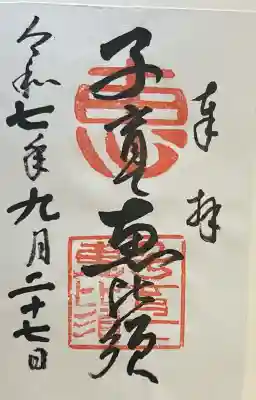 奉拝
子寶恵比須
令和七年九月二十七日